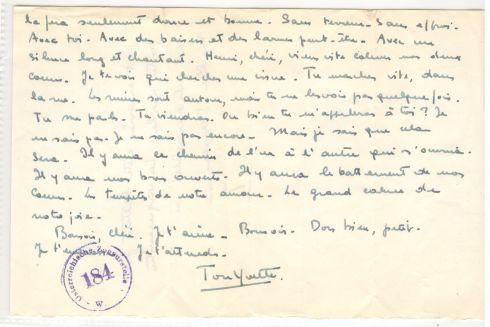 seulement douce et bonne. Sans terreur. Sans effroi.
Avec toi. Avec des baisers et des larmes peut-être. Avec un
silence long et chantant. Henri, chéri, viens vite calmer nos deux
cœurs. Je te vois qui cherches une issue. Tu marches vite, dans
la rue. Les ruines sont autour, mais tu ne les vois pas quelquefois.
Tu me parles. Tu viendras. Ou bien tu m'appelleras à toi ? Je
ne sais pas. Je ne sais pas encore. Mais je sais que cela
sera. Il y aura ce chemin de l'un à l'autre qui s'ouvrira.
Il y aura nos bras ouverts. Il y aura le battement de nos
cœurs. Les tempêtes de notre amour. Le grand calme de
notre joie.
Bonsoir, chéri. Je t'aime. Bonsoir. Dors bien, petit.
Je t'embrasse. Je t'attends.
Ton Yvette.
Österreichische Zensurstelle
184
W